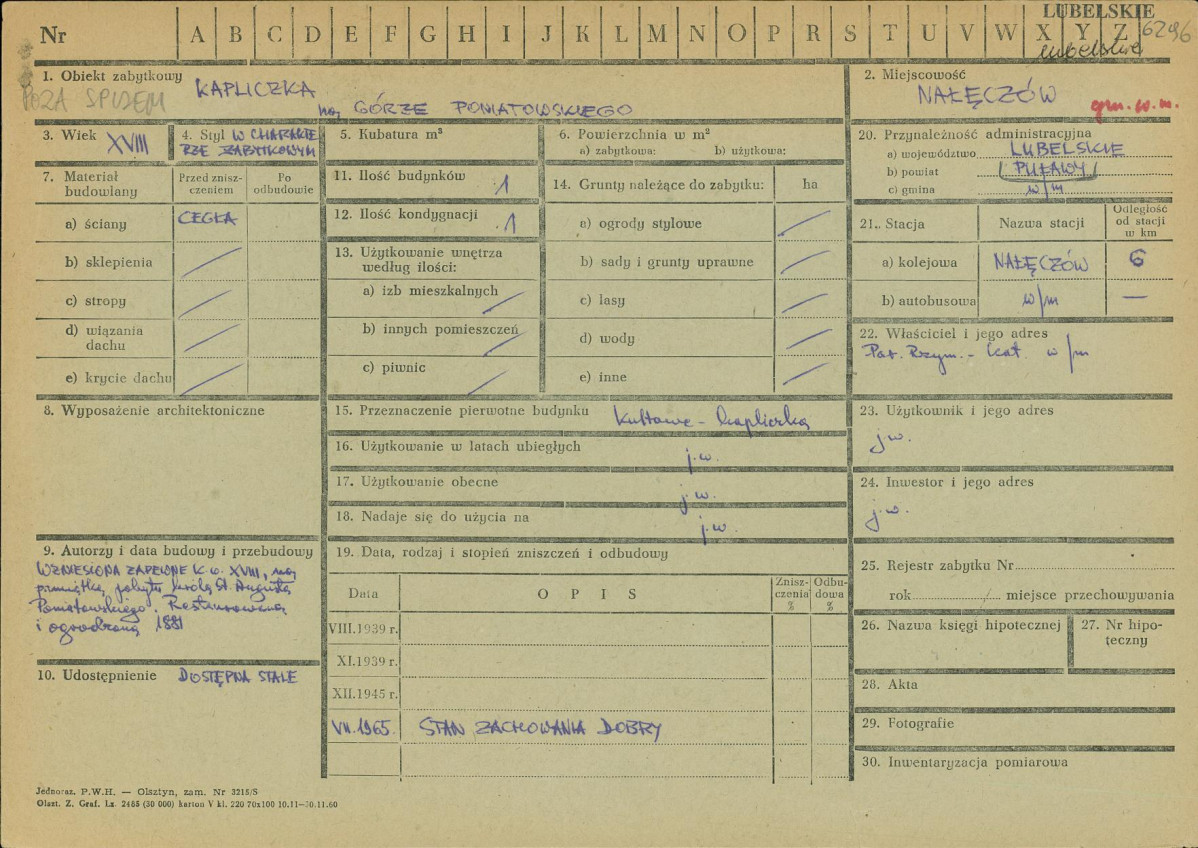 LUBELSKIE
6296
Nr A B C D E F G H I J K L M N O P R S T U V W X Y Z
lubelskie
1. Obiekt zabytkowy KAPLICZKA
POZA SPISEM
na GÓRZE PONIATOWSKIEGO
2. Miejscowość
NAŁĘCZÓW
gm. w. m.
3. Wiek XVIII
4. Styl W CHARAKTE
RZE ZABYTKOWYM
5. Kubatura m³
6. Powierzchnia w m²
a) zabytkowa: b) użytkowa:
7. Materiał budowlany
Przed znisz-
czeniem
Po
odbudowie
a) ściany CEGŁA
b) sklepienia
c) stropy
d) wiązania
dachu
e) krycie dachu
8. Wyposażenie architektoniczne
9. Autorzy i data budowy i przebudowy
WZNIESIONA ZAPEWNE K. w. XVIII, na
pamiątkę pobytu króla St. Augusta
Poniatowskiego. Restaurowana
i ogrodzona 1881
10. Udostępnienie DOSTĘPNA STALE
11. Ilość budynków 1
12. Ilość kondygnacji 1
13. Użytkowanie wnętrza
według ilości:
a) izb mieszkalnych
b) innych pomieszczeń
c) piwnic
14. Grunty należące do zabytku: ha
a) ogrody stylowe
b) sady i grunty uprawne
c) lasy
d) wody
e) inne
15. Przeznaczenie pierwotne budynku kultowe - kapliczka
16. Użytkowanie w latach ubiegłych j.w.
17. Użytkowanie obecne j.w.
18. Nadaje się do użycia na j.w.
19. Data, rodzaj i stopień zniszczeń i odbudowy
Data OPIS
Znisz-
czenia
%
Odbu-
dowa
%
VIII.1939 r.
XI.1939 r.
XII.1945 r.
VII.1965. STAN ZACHOWANIA DOBRY
20. Przynależność administracyjna
a) województwo LUBELSKIE
b) powiat (PUŁAWY)
c) gmina w/m
21. Stacja Nazwa stacji
Odległość
od stacji
w km
a) kolejowa NAŁĘCZÓW 6
b) autobusowa w/m —
22. Właściciel i jego adres
Par. Rzym. - kat. w/m
23. Użytkownik i jego adres
j.w.
24. Inwestor i jego adres
j.w.
25. Rejestr zabytku Nr
rok miejsce przechowywania
26. Nazwa księgi hipotecznej
27. Nr hipo-
teczny
28. Akta
29. Fotografie
30. Inwentaryzacja pomiarowa
Jednoraz. P.W.H. — Olsztyn, zam. Nr 3215/S
Olszt. Z. Graf. Lz. 2465 (30 000) karton V kl. 220 70x100 10.11—30.11.60